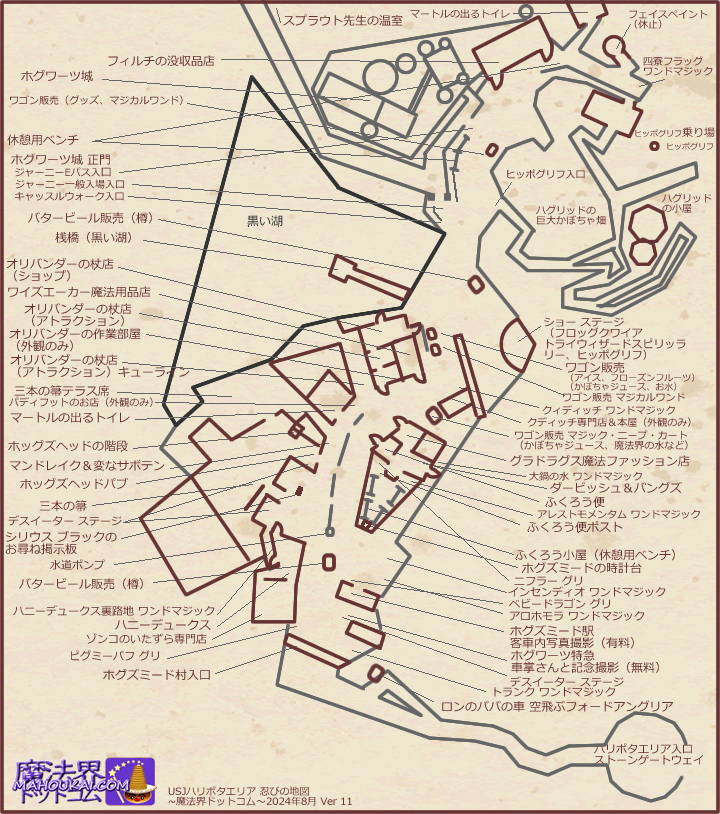 スプラウト先生の温室
マートルの出るトイレ
フェイスペイント
（休止）
フィルチの没収品店
四寮フラッグ
ワンドマジック
ホグワーツ城
ワゴン販売（グッズ、マジカルワンド）
ヒッポグリフ乗り場
ヒッポグリフ
休憩用ベンチ
ホグワーツ城 正門
ジャーニーEパス入口
ジャーニー一般入場入口
キャッスルウォーク入口
ヒッポグリフ入口
ハグリッド
の小屋
ハグリッドの
巨大かぼちゃ畑
バタービール販売（樽）
黒い湖
桟橋（黒い湖）
オリバンダーの杖店
（ショップ）
ワイズエーカー魔法用品店
オリバンダーの杖店
（アトラクション）
オリバンダーの作業部屋
（外観のみ）
オリバンダーの杖店
（アトラクション）キューライン
三本の箒テラス席
パディフットのお店（外観のみ）
マートルの出るトイレ
ホッグズヘッドの階段
マンドレイク＆変なサボテン
ホッグズヘッドパブ
三本の箒
デスイーター ステージ
シリウス ブラックの
お尋ね掲示板
水道ポンプ
バタービール販売（樽）
ハニーデュークス裏路地 ワンドマジック
ハニーデュークス
ゾンコのいたずら専門店
ピグミーパフ グリ
ホグズミード村入口
ショー ステージ
（フロッグクワイア
トライウィザードスピリッラ
リー、ヒッポグリフ）
ワゴン販売
（アイス、フローズンフルーツ）
（かぼちゃジュース、お水）
ワゴン販売 マジカルワンド
クィディッチ ワンドマジック
クディッチ専門店＆本屋（外観のみ）
ワゴン販売 マジック・ニープ・カート
（かぼちゃジュース、魔法界の水など）
グラドラグス魔法ファッション店
大鍋の水 ワンドマジック
ダービッシュ＆バングズ
ふくろう便
アレストモメンタム ワンドマジック
ふくろう便ポスト
ふくろう小屋（休憩用ベンチ）
ホグズミードの時計台
ニフラー グリ
インセンディオ ワンドマジック
ベビードラゴン グリ
アロホモラ ワンドマジック
ホグズミード駅
客車内写真撮影（有料）
ホグワーツ特急
車掌さんと記念撮影（無料）
デスイーター ステージ
トランク ワンドマジック
ロンのパパの車 空飛ぶフォードアングリア
ハリポタエリア入口
ストーンゲートウェイ
魔法界
ドットコム
MAHOUKAI.COM
USJハリポタエリア 忍びの地図
~魔法界ドットコム~2024年8月 Ver 11